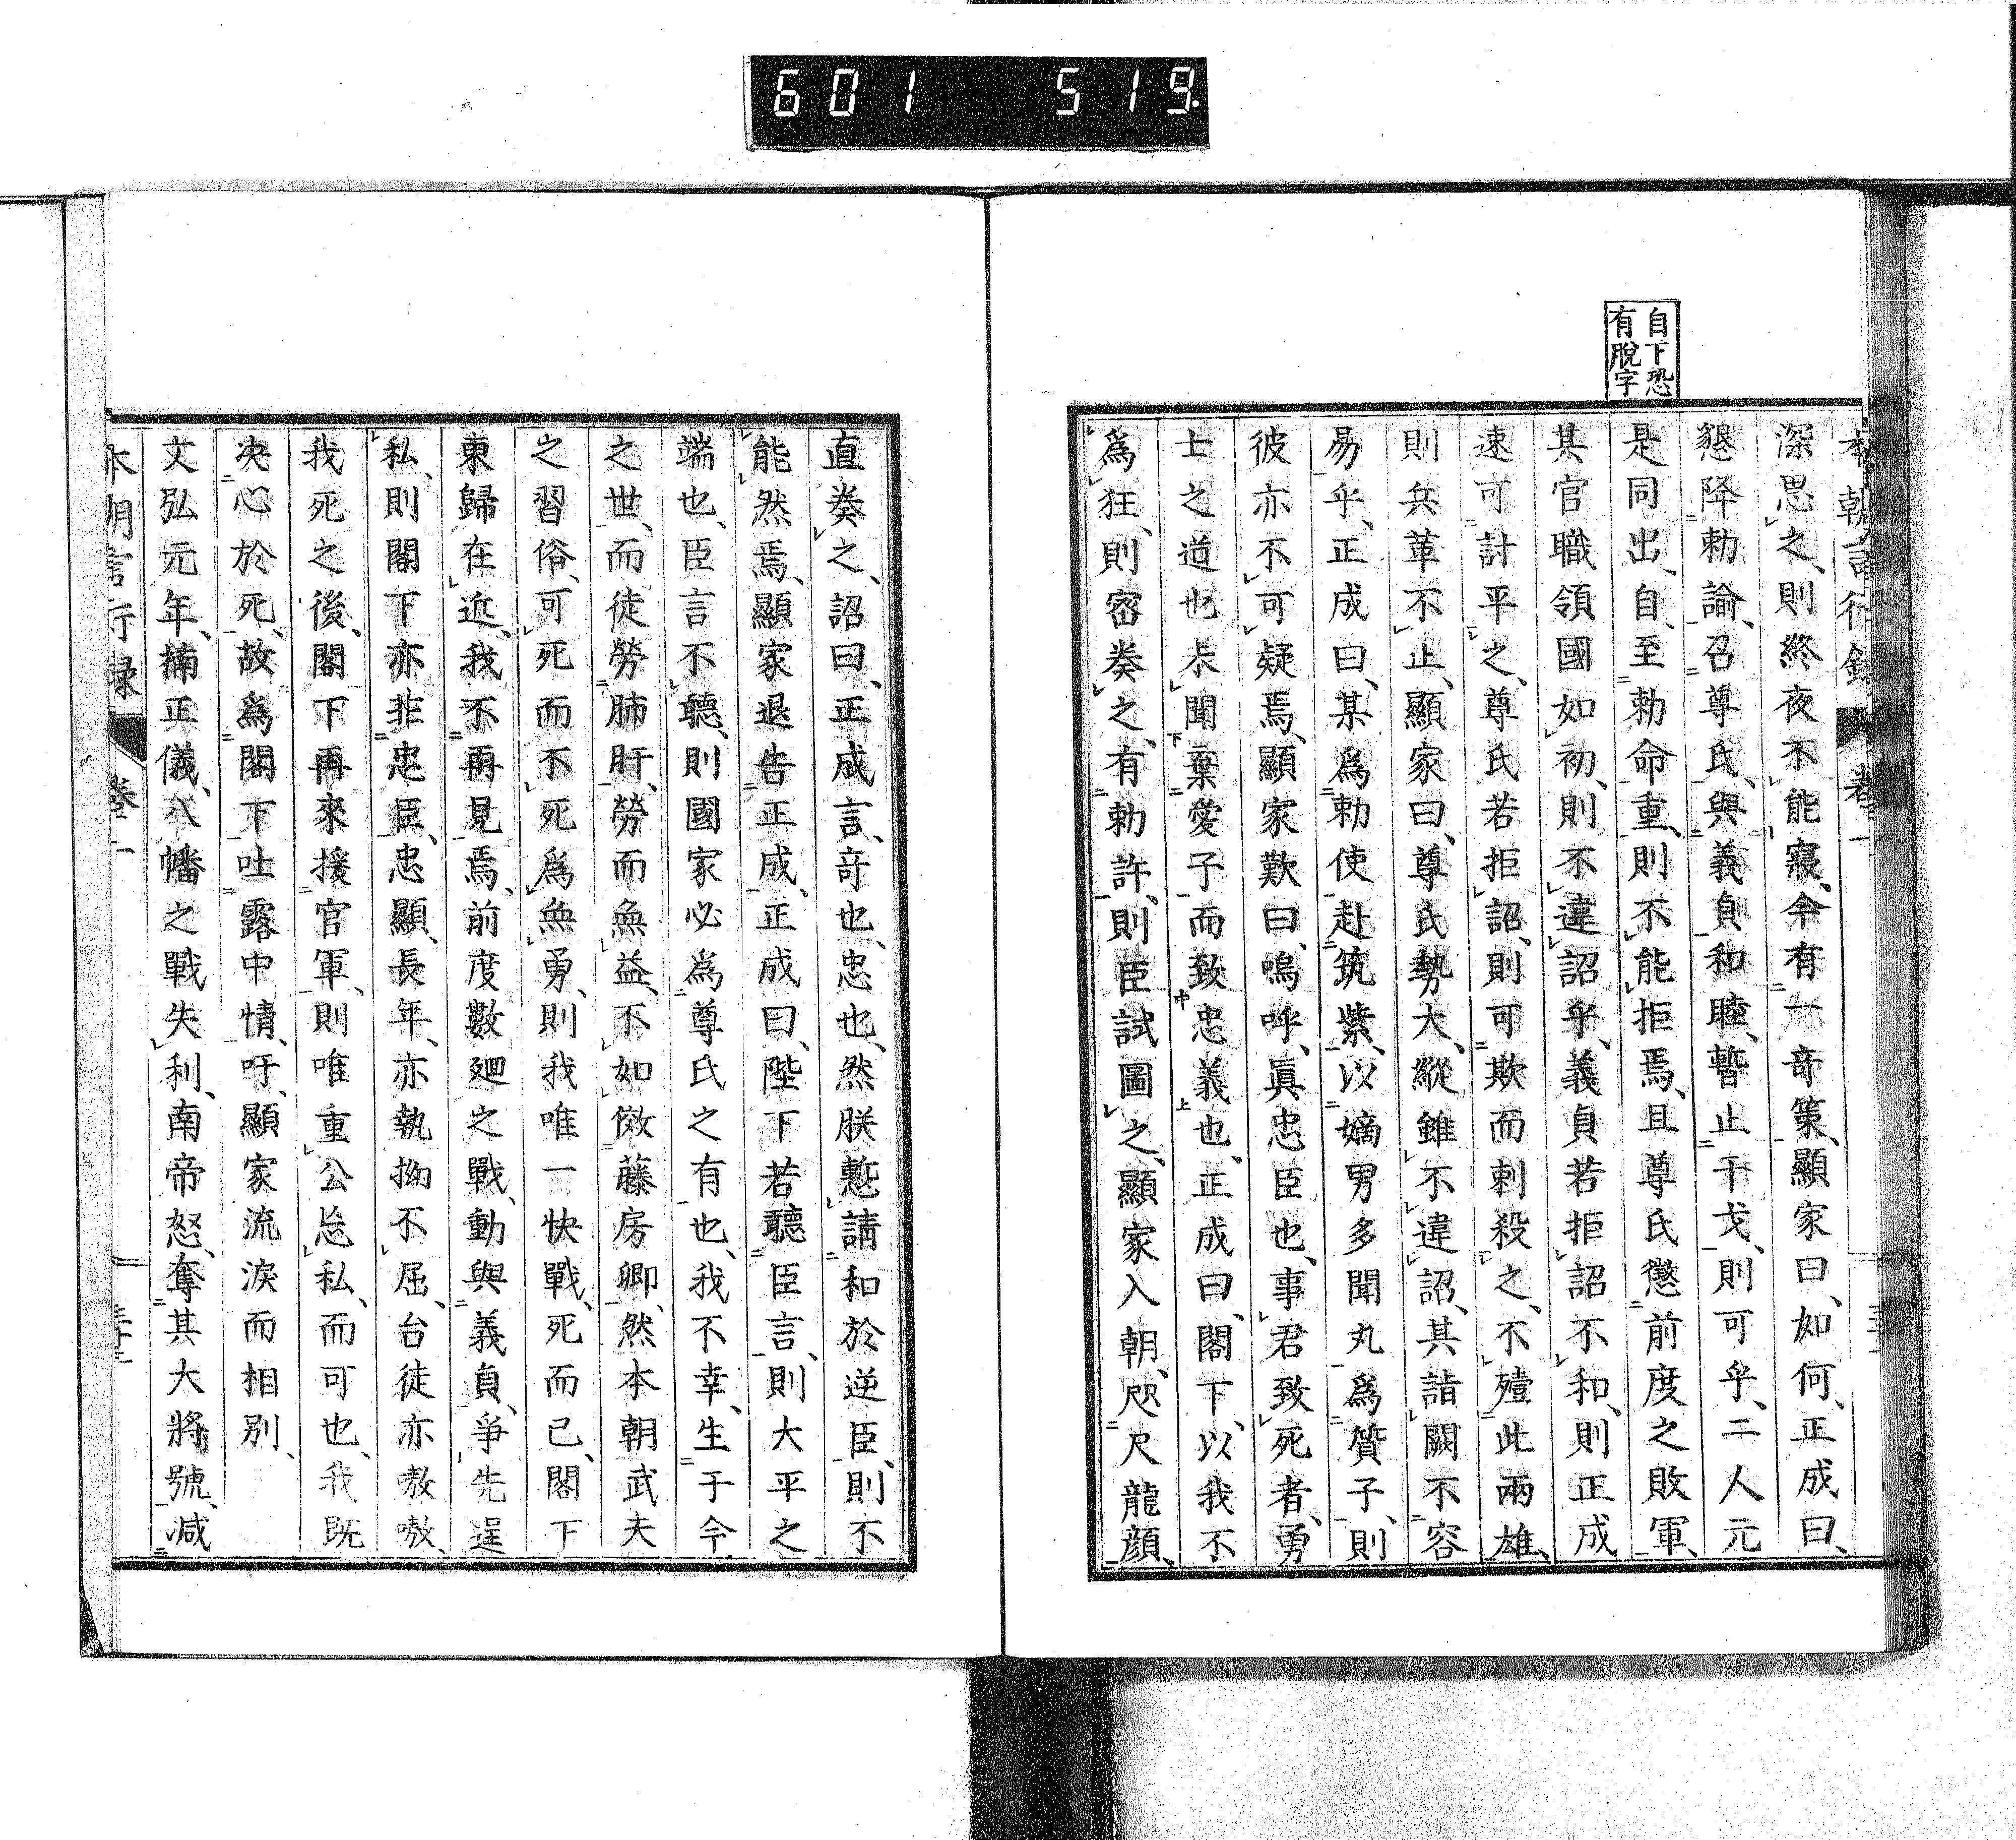 601 519.
自下恐
有脫字
本朝言行錄 卷一
深思之、則終夜不能寢、今有一竒策、顯家曰、如何、正成曰、
懇降勅諭、召尊氏、與義貞和睦、暫止干戈、則可乎、二人元
是同出、自至勅命重、則不能拒焉、且尊氏懲前度之敗軍、
其官職領國如初、則不違詔乎、義貞若拒詔不和、則正成
速可討平之、尊氏若拒詔、則可欺而刺殺之、不殪此兩雄、
則兵革不止、顯家曰、尊氏勢大、縱雖不違詔、其詣闕不容
易乎、正成曰、某爲勅使赴筑紫、以嫡男多聞丸爲質子、則
彼亦不可疑焉、顯家歎曰、嗚呼、眞忠臣也、事君致死者、勇
士之道也、未聞棄愛子而致忠義也、正成曰、閤下、以我不
爲狂、則密奏之、有勅許、則臣試圖之、顯家入朝、咫尺龍顔、
直奏之、詔曰、正成言、竒也、忠也、然朕慙請和於逆臣、則不
能然焉、顯家退告正成、正成曰、陛下若聽臣言、則大平之
端也、臣言不聽、則國家必爲尊氏之有也、我不幸、生于今
之世、而徒勞肺肝、勞而無益、不如傚藤房卿、然本朝武夫
之習俗、可死而不死爲無勇、則我唯一快戰、死而已、閤下
東歸在近、我不再見焉、前度數廻之戰、動與義貞、爭先逞
私、則閤下亦非忠臣、忠顯、長年、亦執拗不屈、台徒亦嗷嗷、
我死之後、閤下再來援官軍、則唯重公忘私、而可也、我既
决心於死、故爲閤下吐露中情、吁、顯家流淚而相别、
文弘元年、楠正儀、八幡之戰失利、南帝怒、奪其大將號、减
本朝言行録 卷一